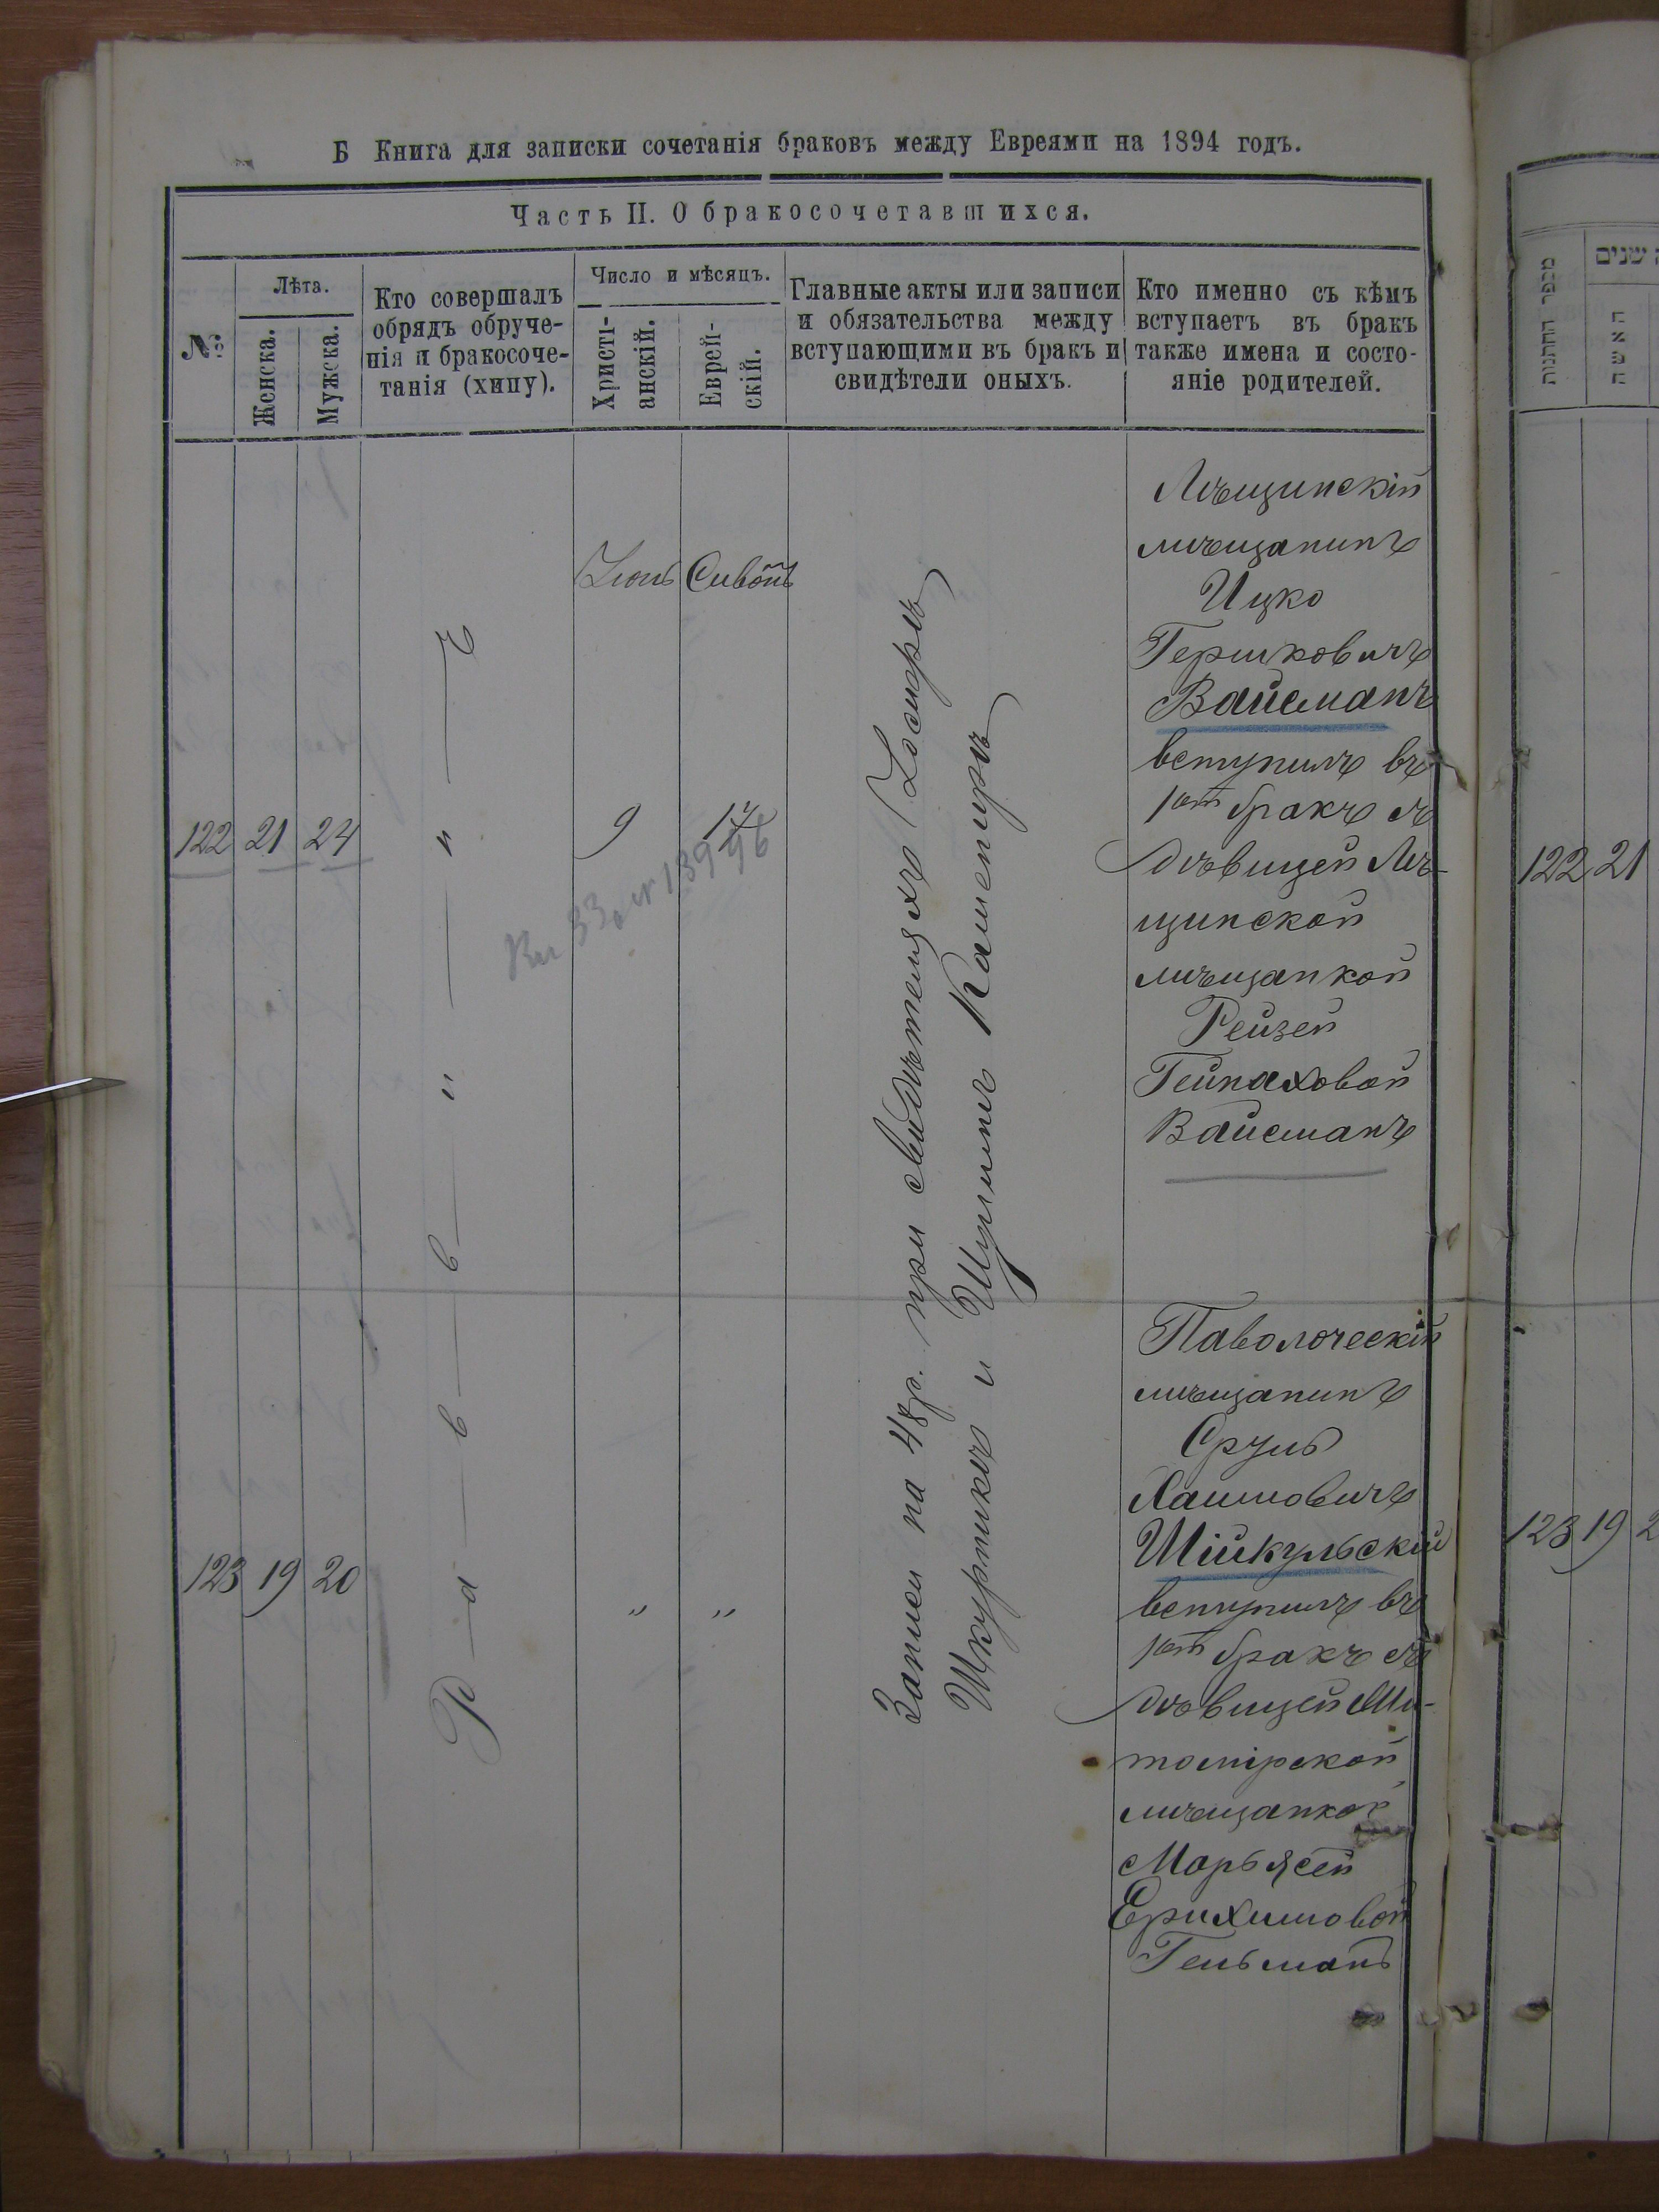 Б Книга для записки сочетанія браковъ между Евреями на 1894 годъ.
Часть II. О бракосочетавшихся.
№
Лѣта.
Женска.
Мужска.
Кто совершалъ
обрядъ обруче-
нія и бракосоче-
танія (хипу).
Число и мѣсяцъ.
Христі-
анскій.
Еврей-
скій.
Главные акты или записи
и обязательства между
вступающими въ бракъ и
свидѣтели оныхъ.
Кто именно съ кѣмъ
вступаетъ въ бракъ
также имена и состо-
яніе родителей.
Р—а—в—в—и—н—ъ
Іюнь
Сивонъ
122
21
24
9
17
Записи на 48р. при свидѣтеляхъ Іосифъ
Шкурникъ и Шулимъ Камениръ
Лѣщинскій
мѣщанинъ
Ицко
Гершковичъ
Вайсманъ
вступилъ въ
1ый бракъ съ
дѣвицей Лѣ-
щинской
мѣщанкой
Рейзей
Гейнаховой
Вайсманъ
123
19
20
"
"
Паволоческій
мѣщанинъ
Сруль
Хаимовичъ
Шійкульскій
вступилъ въ
1ый бракъ съ
дѣвицей Жи-
томірской
мѣщанкой
Марьясей
Ерихимовой
Гельманъ
מספר החתנות
האשה
שנים
122
21
123
19
2